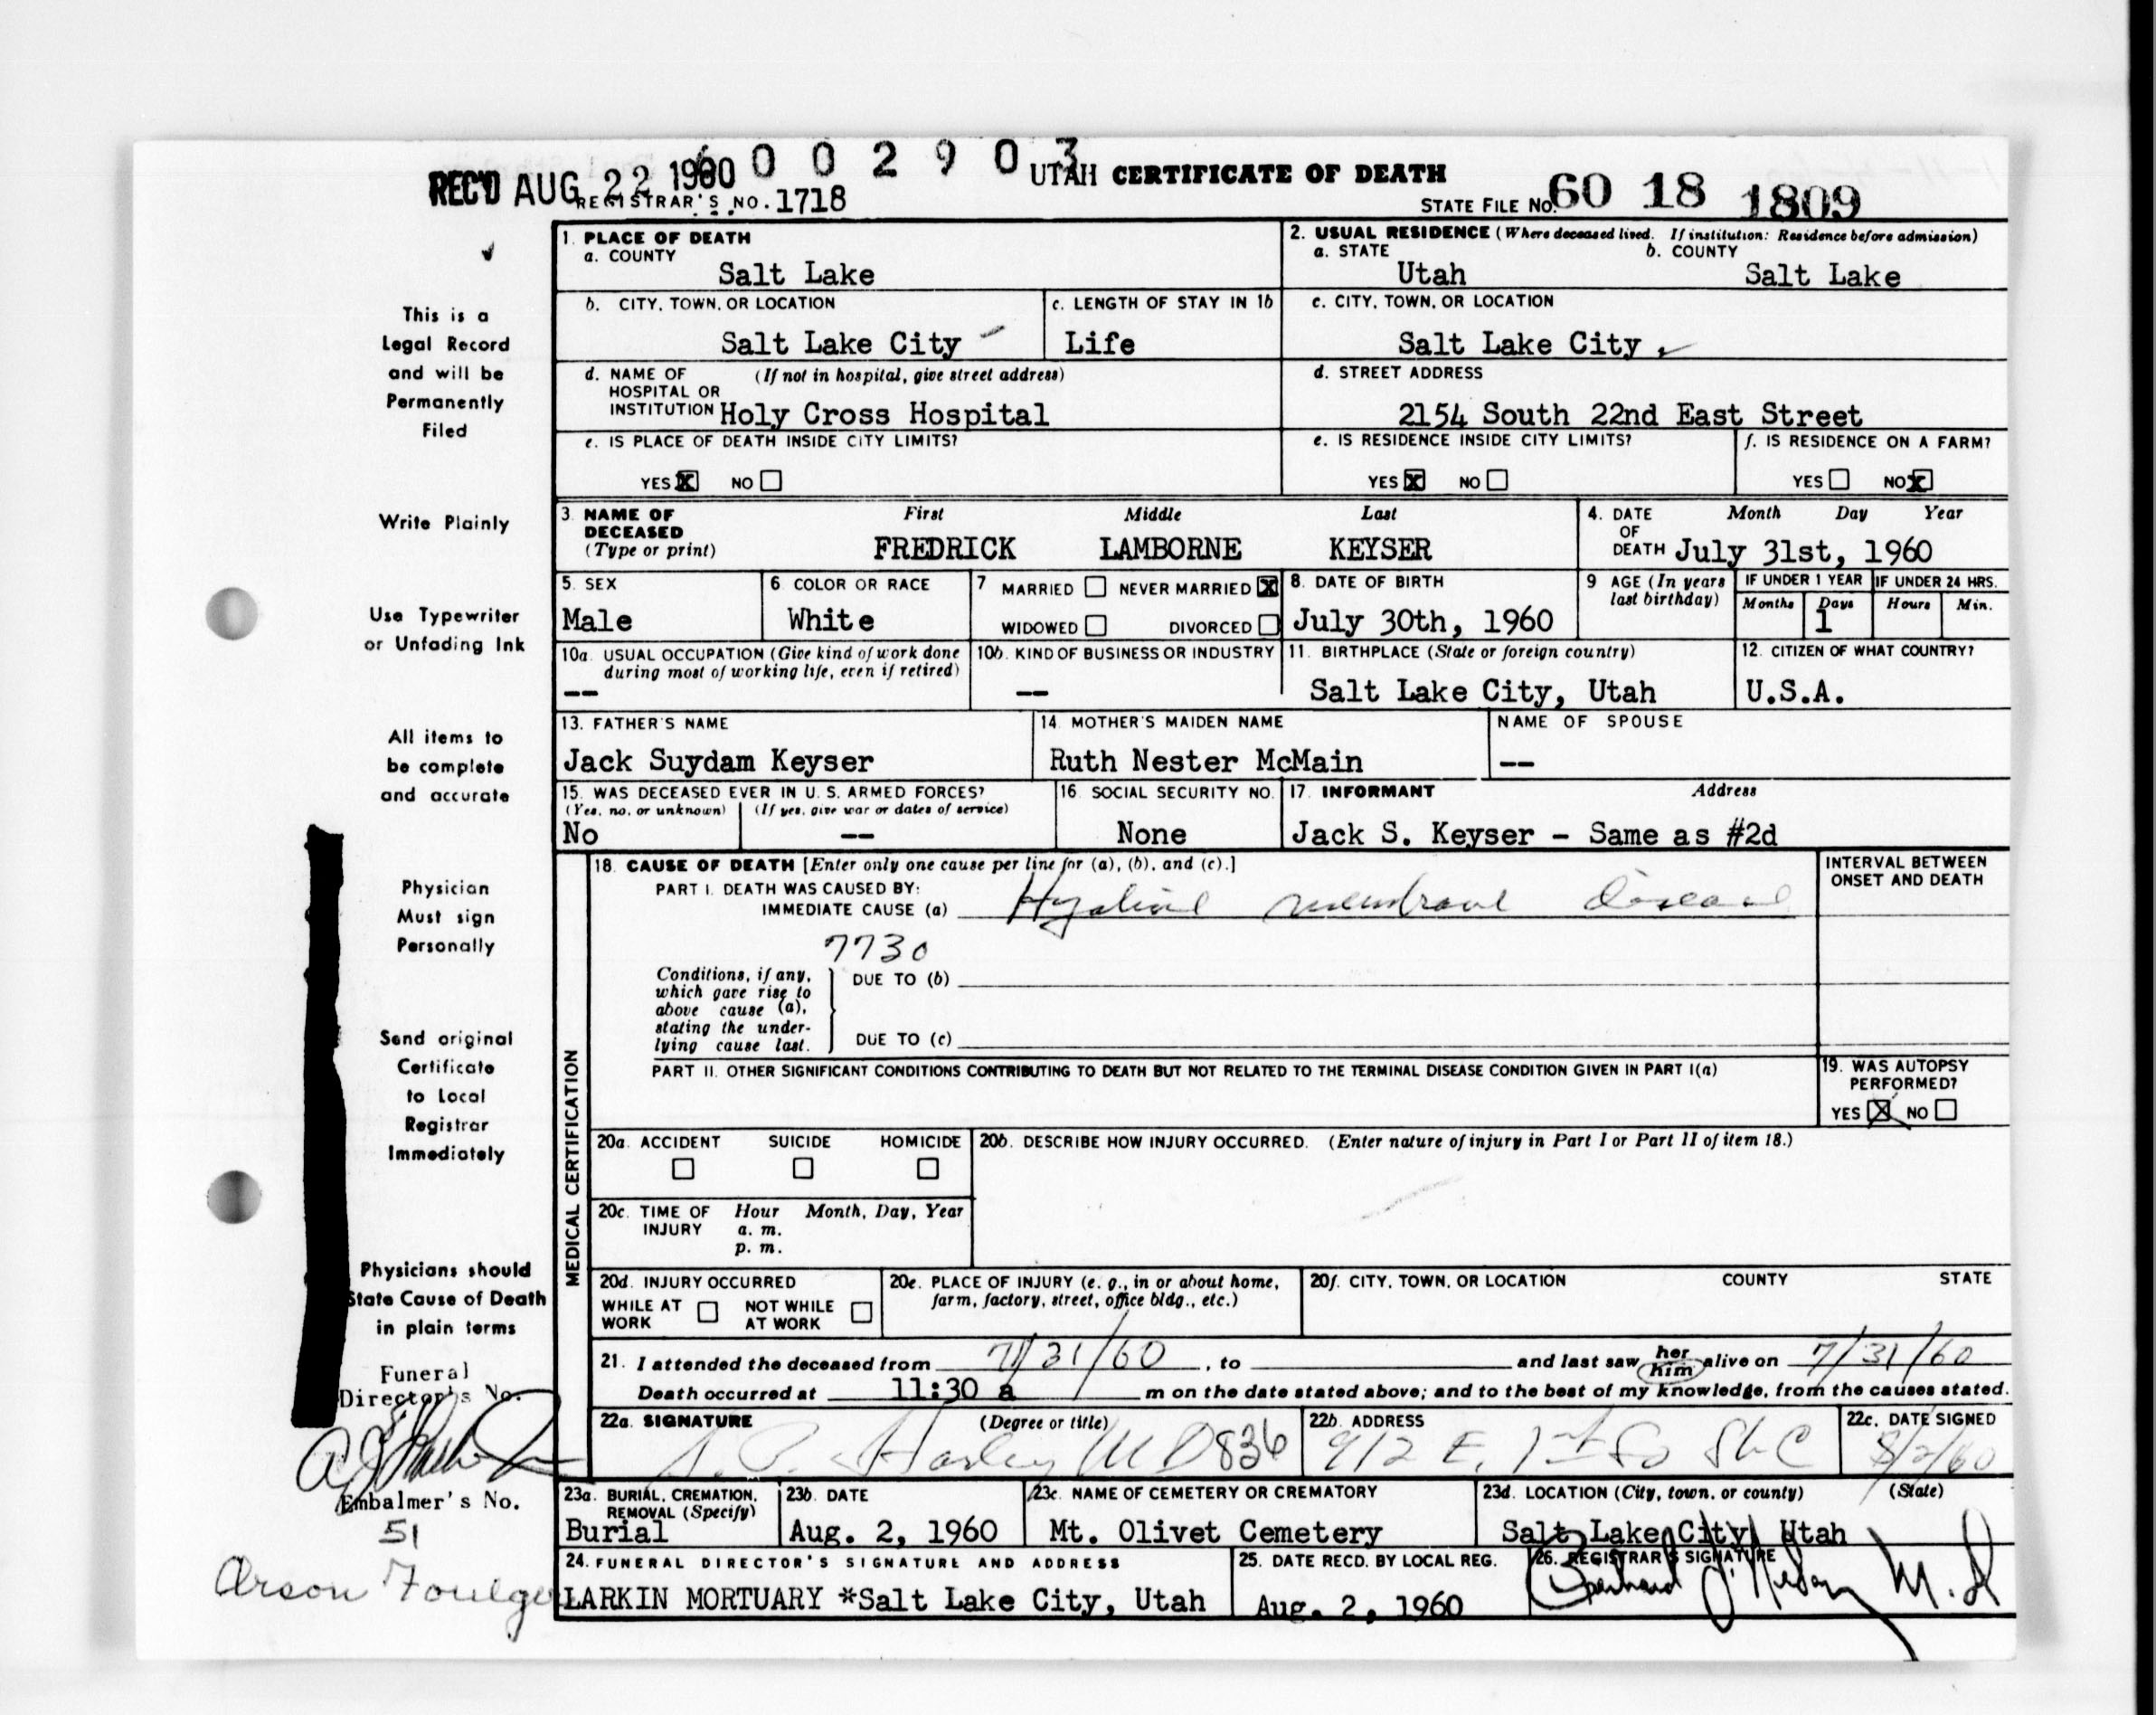 REC'D AUG 22 1960 6002903 UTAH CERTIFICATE OF DEATH
REGISTRAR'S NO. 1718
STATE FILE NO. 60 18 1809
This is a
Legal Record
and will be
Permanently
Filed
Write Plainly
Use Typewriter
or Unfading Ink
All items to
be complete
and accurate
Physician
Must sign
Personally
Send original
Certificate
to Local
Registrar
Immediately
Physicians should
State Cause of Death
in plain terms
Funeral
Director's No.
Embalmer's No.
51
Orson Foulger
1. PLACE OF DEATH
a. COUNTY
Salt Lake
2. USUAL RESIDENCE (Where deceased lived. If institution: Residence before admission)
a. STATE b. COUNTY
Utah Salt Lake
b. CITY, TOWN, OR LOCATION
Salt Lake City
c. LENGTH OF STAY IN 1b
Life
c. CITY, TOWN, OR LOCATION
Salt Lake City
d. NAME OF (If not in hospital, give street address)
HOSPITAL OR
INSTITUTION Holy Cross Hospital
d. STREET ADDRESS
2154 South 22nd East Street
e. IS PLACE OF DEATH INSIDE CITY LIMITS?
YES X NO
e. IS RESIDENCE INSIDE CITY LIMITS?
YES X NO
f. IS RESIDENCE ON A FARM?
YES NO X
3. NAME OF DECEASED (Type or print)
First Middle Last
FREDRICK LAMBORNE KEYSER
4. DATE OF DEATH Month Day Year
July 31st, 1960
5. SEX
Male
6. COLOR OR RACE
White
7 MARRIED NEVER MARRIED X
WIDOWED DIVORCED
8. DATE OF BIRTH
July 30th, 1960
9 AGE (In years last birthday)
IF UNDER 1 YEAR IF UNDER 24 HRS.
Months Days Hours Min.
1
10a. USUAL OCCUPATION (Give kind of work done
during most of working life, even if retired)
--
10b. KIND OF BUSINESS OR INDUSTRY
--
11. BIRTHPLACE (State or foreign country)
Salt Lake City, Utah
12. CITIZEN OF WHAT COUNTRY?
U.S.A.
13. FATHER'S NAME
Jack Suydam Keyser
14. MOTHER'S MAIDEN NAME
Ruth Nester McMain
NAME OF SPOUSE
--
15. WAS DECEASED EVER IN U. S. ARMED FORCES?
(Yes, no, or unknown) (If yes, give war or dates of service)
No --
16. SOCIAL SECURITY NO.
None
17. INFORMANT Address
Jack S. Keyser - Same as #2d
MEDICAL CERTIFICATION
18. CAUSE OF DEATH [Enter only one cause per line for (a), (b), and (c).]
PART I. DEATH WAS CAUSED BY:
IMMEDIATE CAUSE (a) Hyaline membrane disease
7730
Conditions, if any,
which gave rise to
above cause (a),
stating the under-
lying cause last.
DUE TO (b)
DUE TO (c)
INTERVAL BETWEEN
ONSET AND DEATH
PART II. OTHER SIGNIFICANT CONDITIONS CONTRIBUTING TO DEATH BUT NOT RELATED TO THE TERMINAL DISEASE CONDITION GIVEN IN PART I(a)
19. WAS AUTOPSY
PERFORMED?
YES X NO
20a. ACCIDENT SUICIDE HOMICIDE
20b. DESCRIBE HOW INJURY OCCURRED. (Enter nature of injury in Part I or Part II of item 18.)
20c. TIME OF INJURY Hour Month, Day, Year
a. m.
p. m.
20d. INJURY OCCURRED
WHILE AT WORK NOT WHILE AT WORK
20e. PLACE OF INJURY (e. g., in or about home,
farm, factory, street, office bldg., etc.)
20f. CITY, TOWN, OR LOCATION COUNTY STATE
21. I attended the deceased from 7/31/60, to and last saw her him alive on 7/31/60
Death occurred at 11:30 a m on the date stated above; and to the best of my knowledge, from the causes stated.
22a. SIGNATURE (Degree or title)
Harley MD 836
22b. ADDRESS
912 E. 1st So SLC
22c. DATE SIGNED
8/2/60
23a. BURIAL, CREMATION,
REMOVAL (Specify)
Burial
23b. DATE
Aug. 2, 1960
23c. NAME OF CEMETERY OR CREMATORY
Mt. Olivet Cemetery
23d. LOCATION (City, town, or county) (State)
Salt Lake City, Utah
24. FUNERAL DIRECTOR'S SIGNATURE AND ADDRESS
LARKIN MORTUARY *Salt Lake City, Utah
25. DATE RECD. BY LOCAL REG.
Aug. 2, 1960
26. REGISTRAR'S SIGNATURE
M.D